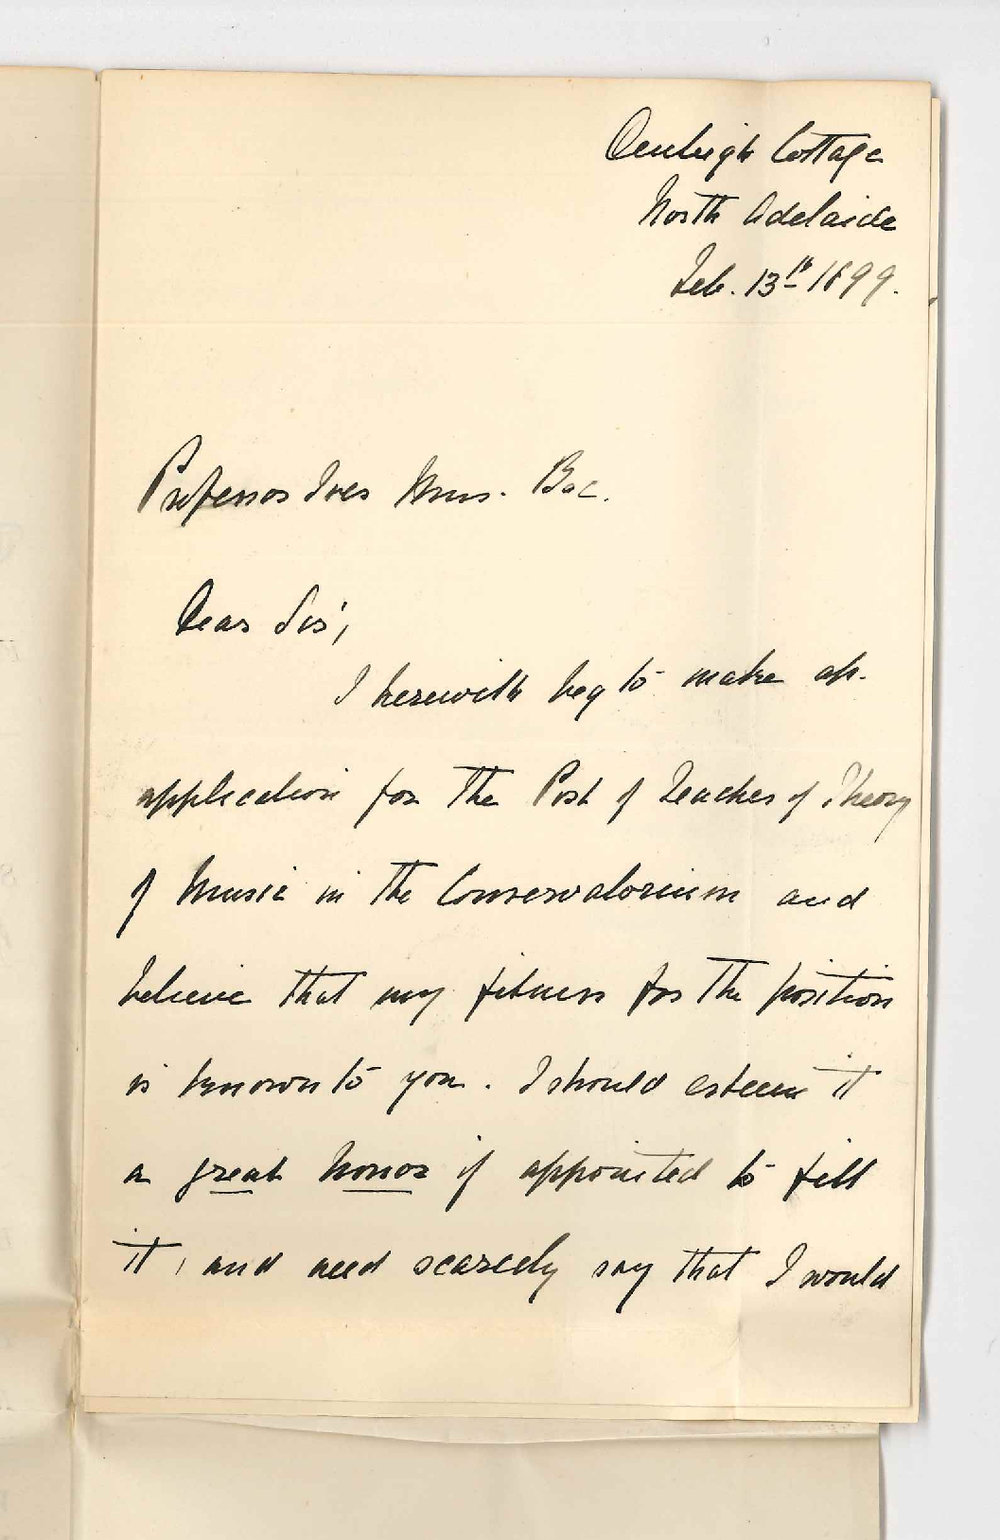 Denleigh Cottage
North Adelaide
Feb. 13th 1899.
Professor Ives Mus. Bac.
Dear Sir,
I herewith beg to make ap-
application for the Post of Teacher of Theory
of Music in the Conservatorium and
believe that my fitness for the position
is known to you. I should esteem it
a great honor if appointed to fill
it, and need scarcely say that I would